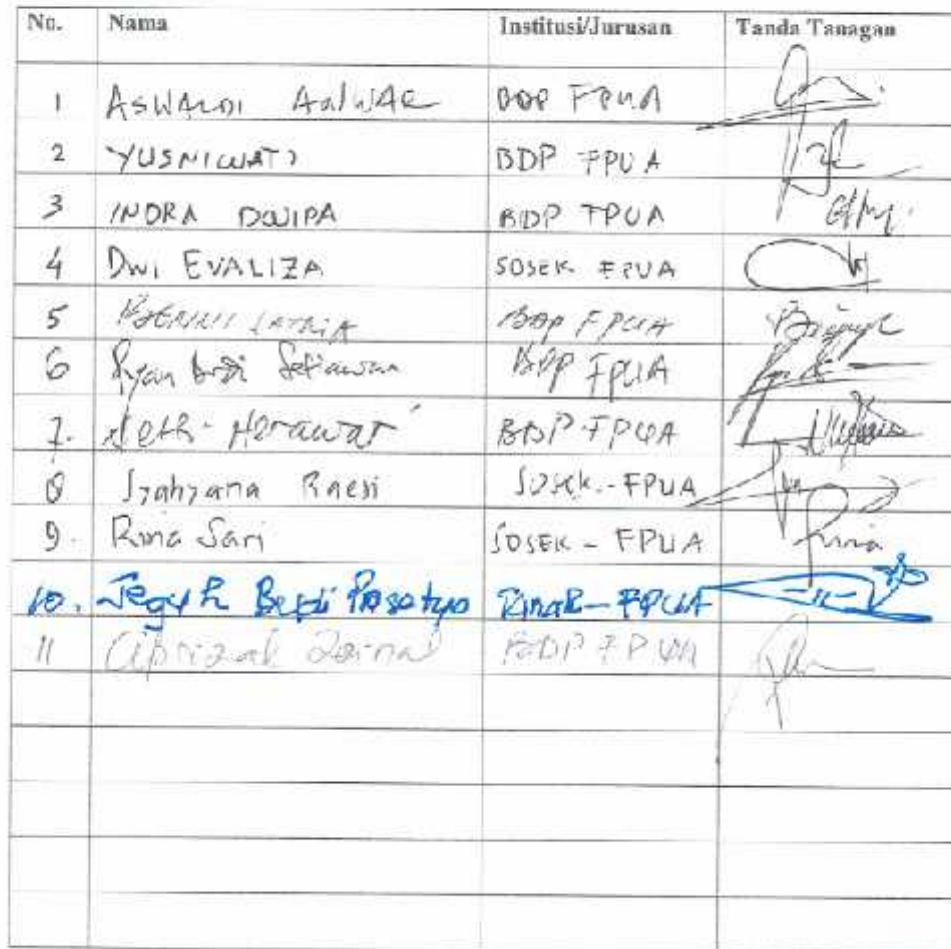 No. Nama Institusi/Jurusan Tanda Tanagan
1 ASWALDI ANWAR BDP FPUA
2 YUSNIWATI BDP FPUA
3 INDRA DWIPA BDP FPUA
4 DWI EVALIZA SOSEK FPUA
5 BDP FPUA
6 Ryan Budi Setiawan BDP FPUA
7. Netti Herawati BDP FPUA
8 Syahyana Raesi SOSEK - FPUA
9. Rina Sari SOSEK - FPUA
10. Teguh Budi Prasetyo FPUA
11 Aprizal Zainal BDP FPUA